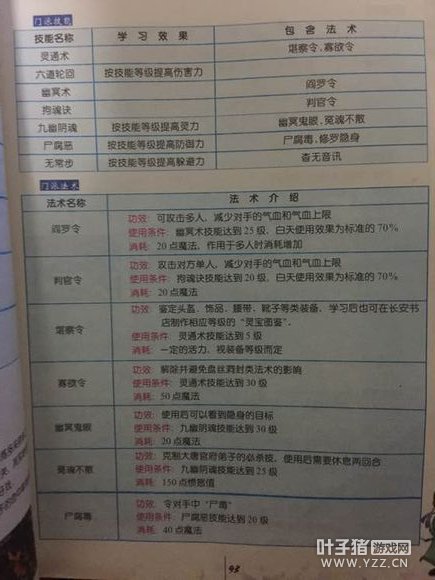 门派技能
技能名称 学习效果 包含法术
灵通术 堪察令，寡欲令
六道轮回 按技能等级提高伤害力
幽冥术 阎罗令
拘魂诀 判官令
九幽阴魂 按技能等级提高灵力 幽冥鬼眼，冤魂不散
尸腐恶 按技能等级提高防御力 尸腐毒，修罗隐身
无常步 按技能等级提高躲避力 杳无音讯
门派法术
法术名称 法术介绍
阎罗令
功效：可攻击多人，减少对手的气血和气血上限
使用条件：幽冥术技能达到25级，白天使用效果为标准的70%
消耗：20点魔法，作用于多人时消耗增加
判官令
功效：攻击对方单人，减少对手的气血和气血上限
使用条件：拘魂诀技能达到20级，白天使用效果为标准的70%
消耗：20点魔法
堪察令
功效：鉴定头盔、饰品、腰带、靴子等类装备，学习后也可在长安书
店制作相应等级的“灵宝图鉴”。
使用条件：灵通术技能达到5级
消耗：一定的活力，视装备等级而定
寡欲令
功效：解除并避免盘丝洞封类法术的影响
使用条件：灵通术技能达到30级
消耗：50点魔法
幽冥鬼眼
功效：使用后可以看到隐身的目标
使用条件：九幽阴魂技能达到30级
消耗：20点魔法
冤魂不散
功效：克制大唐官府弟子的必杀技，使用后需要休息两回合
使用条件：九幽阴魂技能达到25级
消耗：150点愤怒值
尸腐毒
功效：令对手中“尸毒”
使用条件：尸腐恶技能达到20级
消耗：40点魔法
叶子猪游戏网
WWW.YZZ.CN